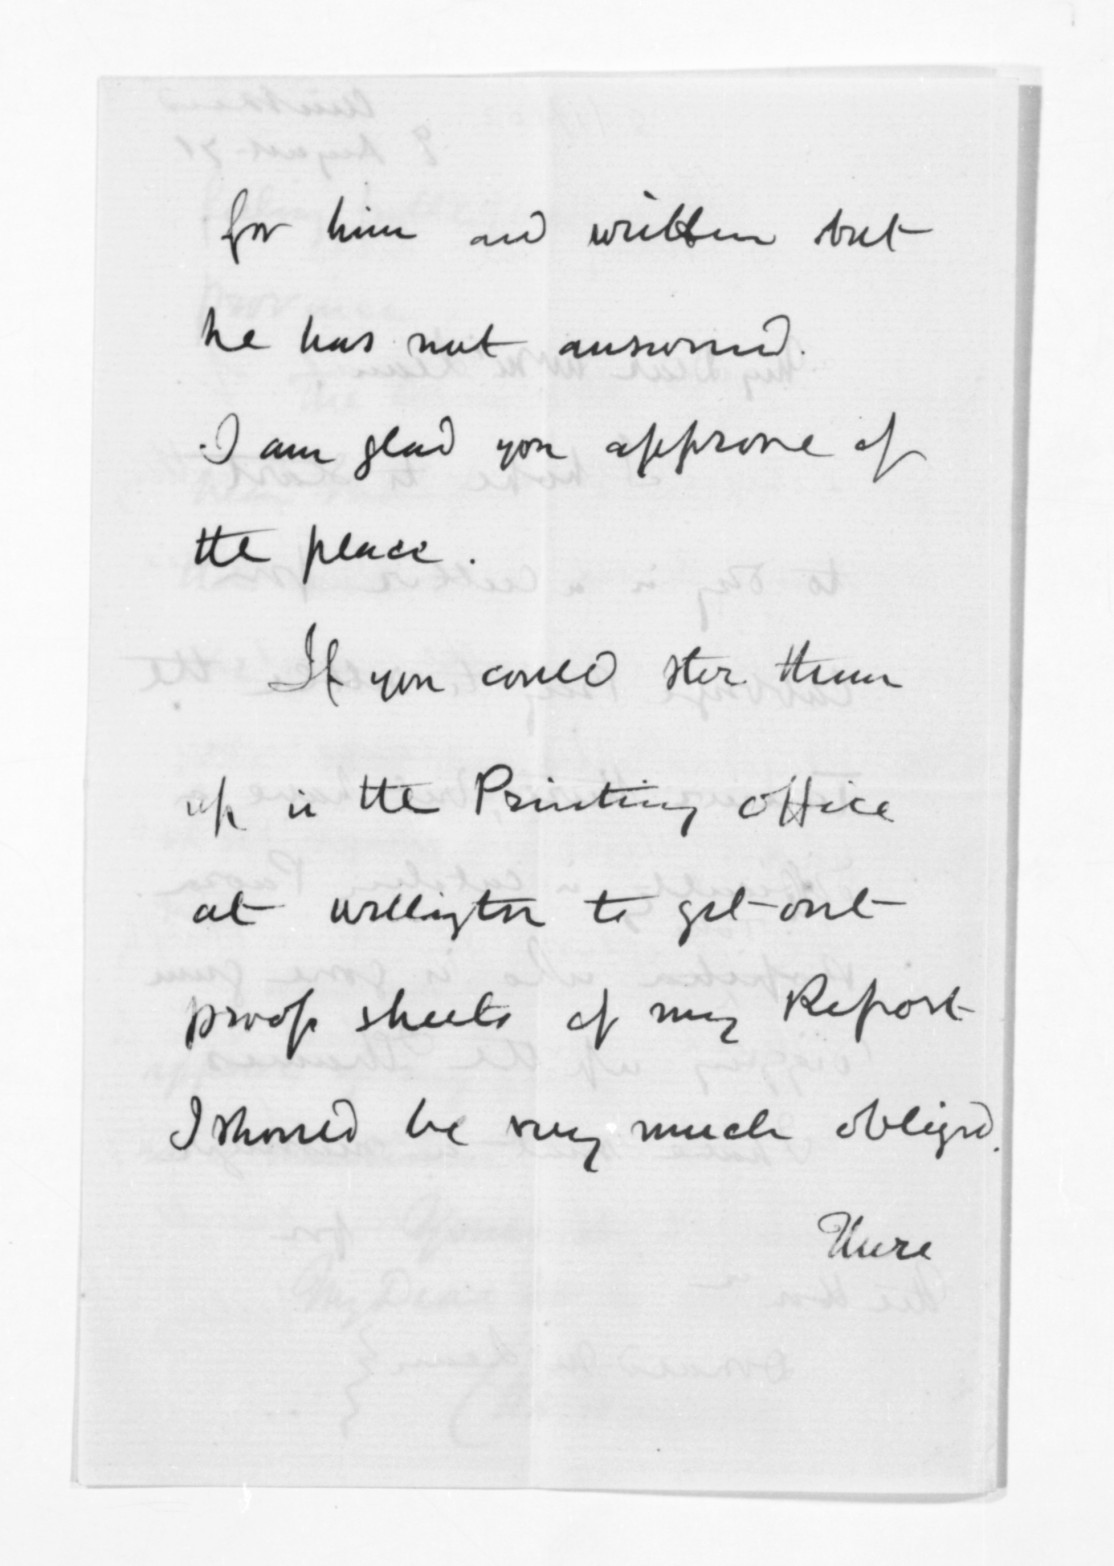 for him and written but
he has not answered.
I am glad you approve of
the place.
If you could stir them
up in the Printing office
at Wellington to get out
proof sheets of my Report
I should be very much obliged.